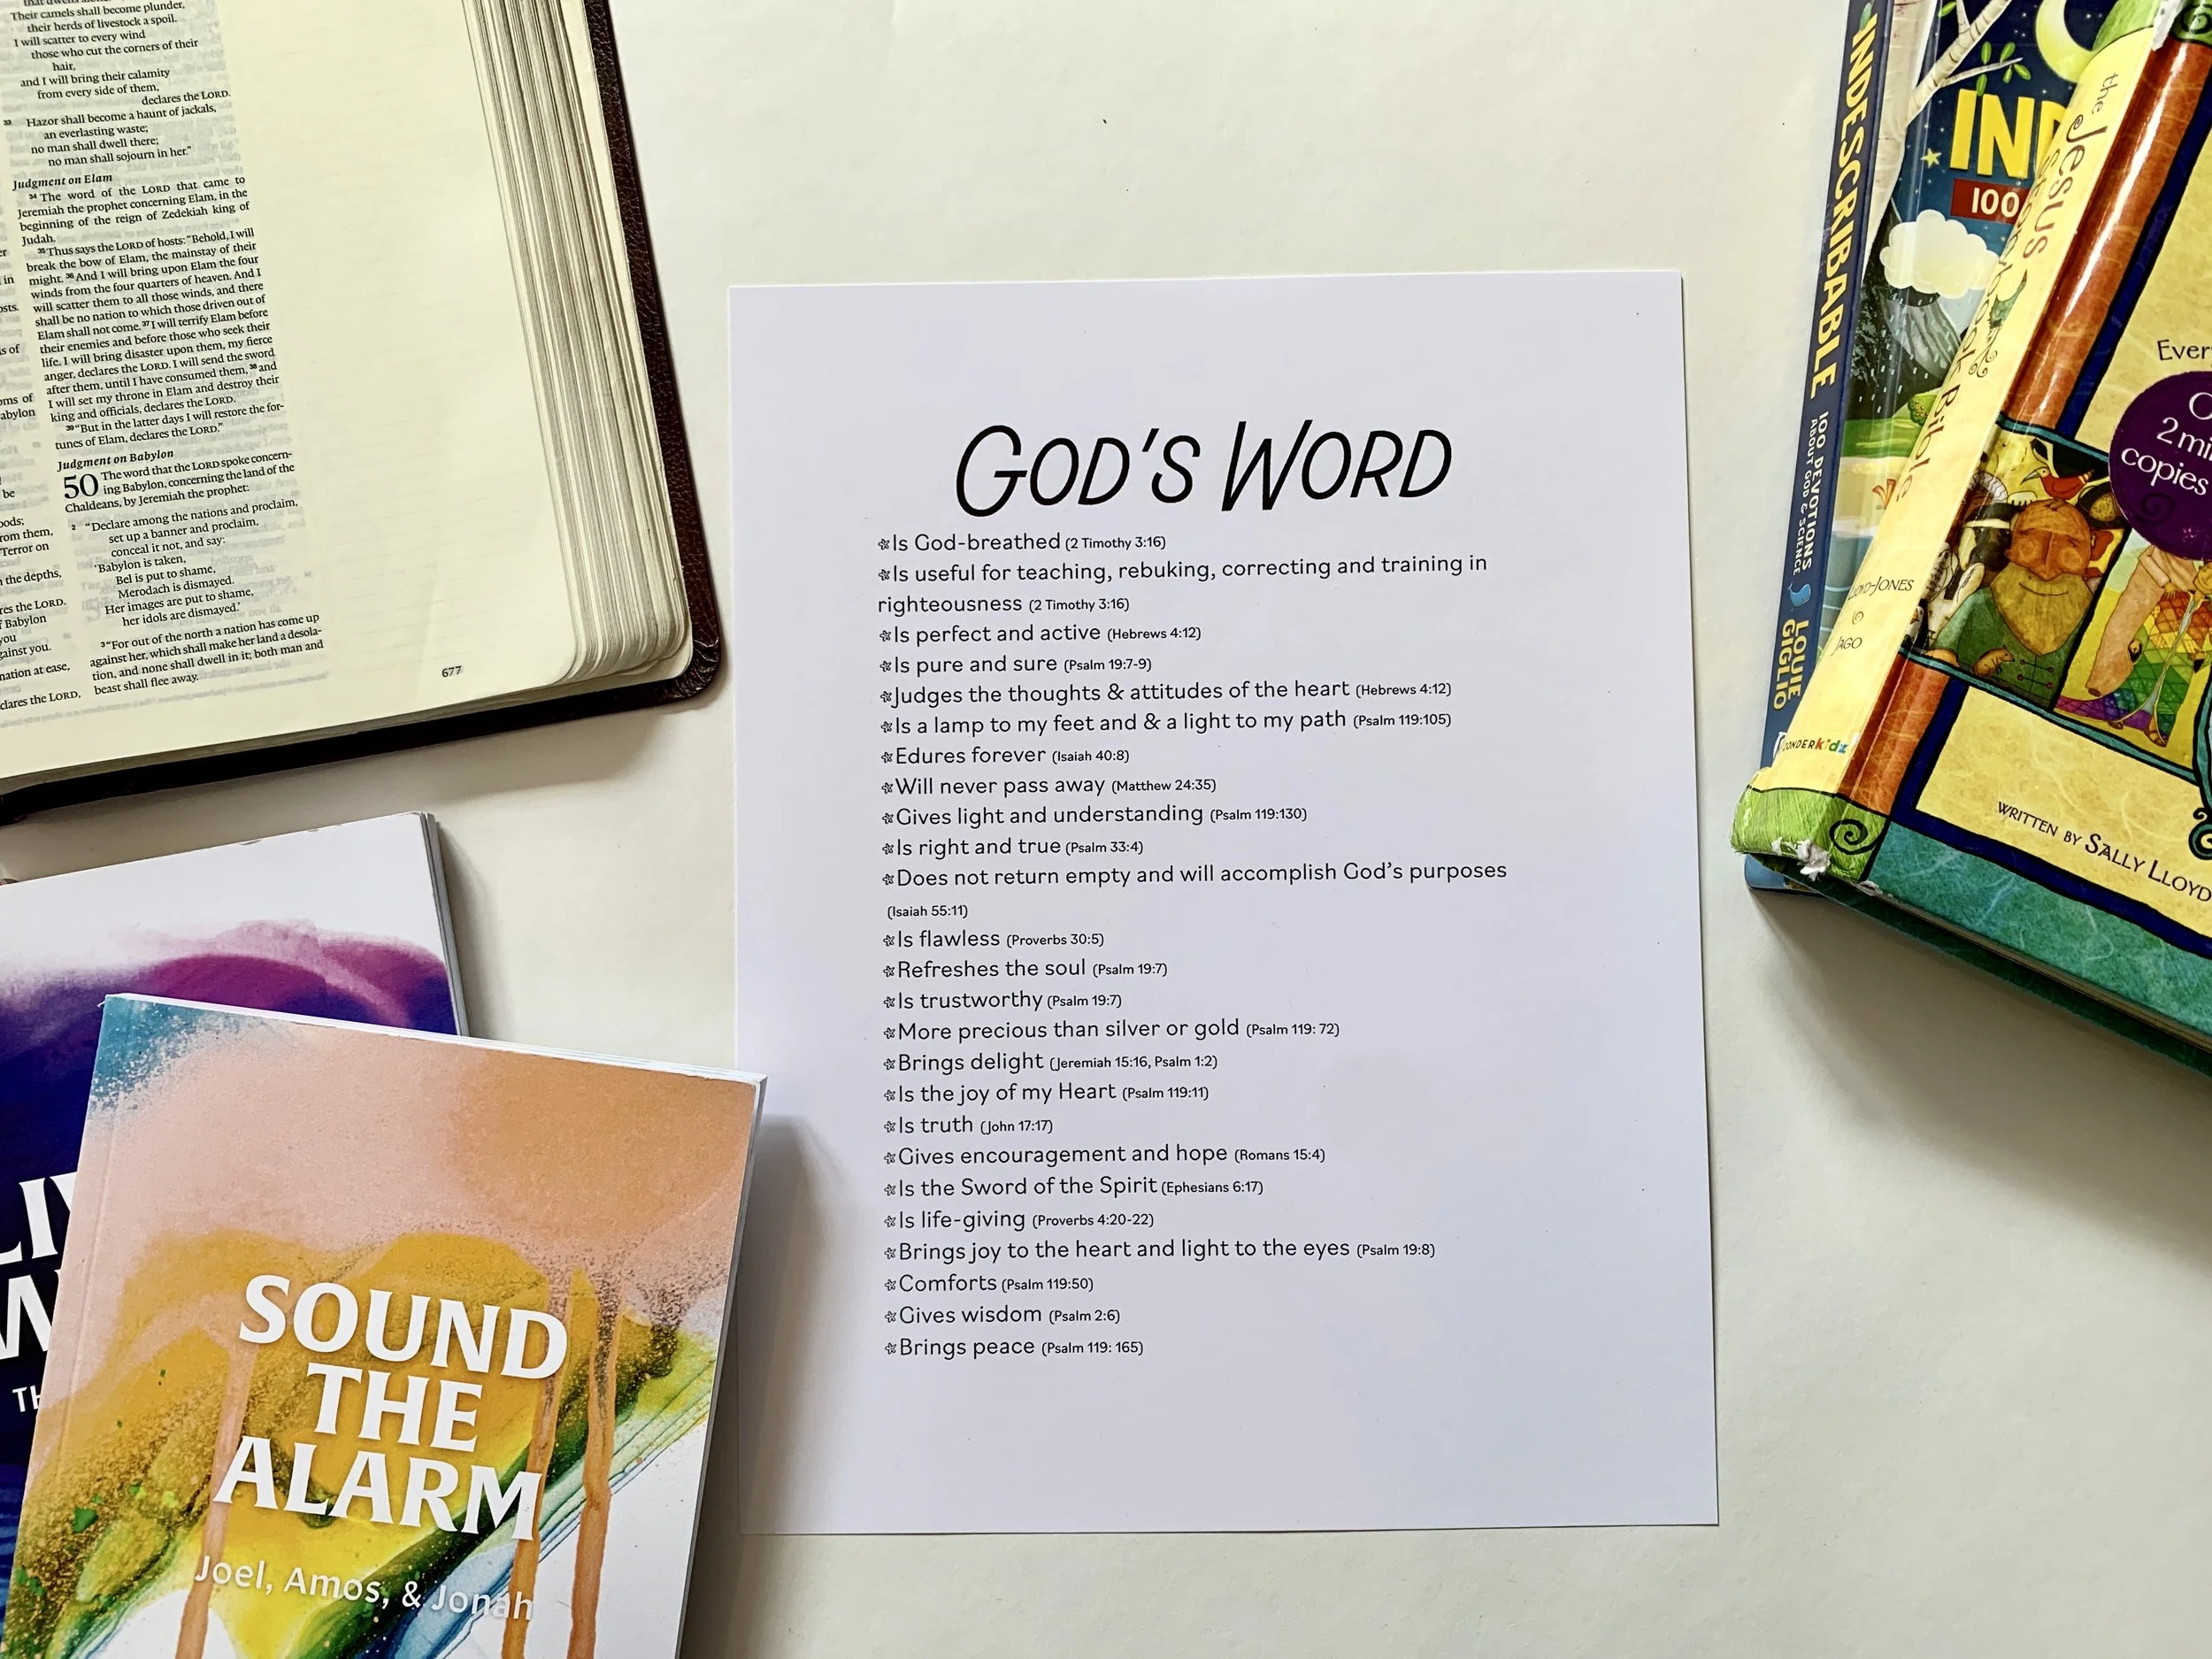 Their camels shall become plunder,
their herds of livestock a spoil.
I will scatter to every wind
those who cut the corners of their
hair,
and I will bring their calamity
from every side of them,
declares the LORD.
33 Hazor shall become a haunt of jackals,
an everlasting waste;
no man shall dwell there;
no man shall sojourn in her."
Judgment on Elam
34 The word of the LORD that came to
Jeremiah the prophet concerning Elam, in the
beginning of the reign of Zedekiah king of
Judah.
35 Thus says the LORD of hosts: "Behold, I will
break the bow of Elam, the mainstay of their
might. 36 And I will bring upon Elam the four
winds from the four quarters of heaven. And I
will scatter them to all those winds, and there
shall be no nation to which those driven out of
Elam shall not come. 37 I will terrify Elam before
their enemies and before those who seek their
life. I will bring disaster upon them, my fierce
anger, declares the LORD. I will send the sword
after them, until I have consumed them, 38 and
I will set my throne in Elam and destroy their
king and officials, declares the LORD.
39 "But in the latter days I will restore the for-
tunes of Elam, declares the LORD."
Judgment on Babylon
50 The word that the LORD spoke concern-
ing Babylon, concerning the land of the
Chaldeans, by Jeremiah the prophet:
2 "Declare among the nations and proclaim,
set up a banner and proclaim,
conceal it not, and say:
'Babylon is taken,
Bel is put to shame,
Merodach is dismayed.
Her images are put to shame,
her idols are dismayed.'
3 "For out of the north a nation has come up
against her, which shall make her land a desola-
tion, and none shall dwell in it; both man and
beast shall flee away.
677
GOD'S WORD
Is God-breathed (2 Timothy 3:16)
Is useful for teaching, rebuking, correcting and training in
righteousness (2 Timothy 3:16)
Is perfect and active (Hebrews 4:12)
Is pure and sure (Psalm 19:7-9)
Judges the thoughts & attitudes of the heart (Hebrews 4:12)
Is a lamp to my feet and & a light to my path (Psalm 119:105)
Edures forever (Isaiah 40:8)
Will never pass away (Matthew 24:35)
Gives light and understanding (Psalm 119:130)
Is right and true (Psalm 33:4)
Does not return empty and will accomplish God's purposes
(Isaiah 55:11)
Is flawless (Proverbs 30:5)
Refreshes the soul (Psalm 19:7)
Is trustworthy (Psalm 19:7)
More precious than silver or gold (Psalm 119: 72)
Brings delight (Jeremiah 15:16, Psalm 1:2)
Is the joy of my Heart (Psalm 119:11)
Is truth (John 17:17)
Gives encouragement and hope (Romans 15:4)
Is the Sword of the Spirit (Ephesians 6:17)
Is life-giving (Proverbs 4:20-22)
Brings joy to the heart and light to the eyes (Psalm 19:8)
Comforts (Psalm 119:50)
Gives wisdom (Psalm 2:6)
Brings peace (Psalm 119: 165)
SOUND
THE
ALARM
Joel, Amos, & Jonah
INDESCRIBABLE
100 DEVOTIONS
ABOUT GOD & SCIENCE
LOUIE
GIGLIO
ZONDERkidz
100
the Jesus Storybook Bible
LLOYD-JONES
JAGO
copies
WRITTEN BY SALLY LLOYD